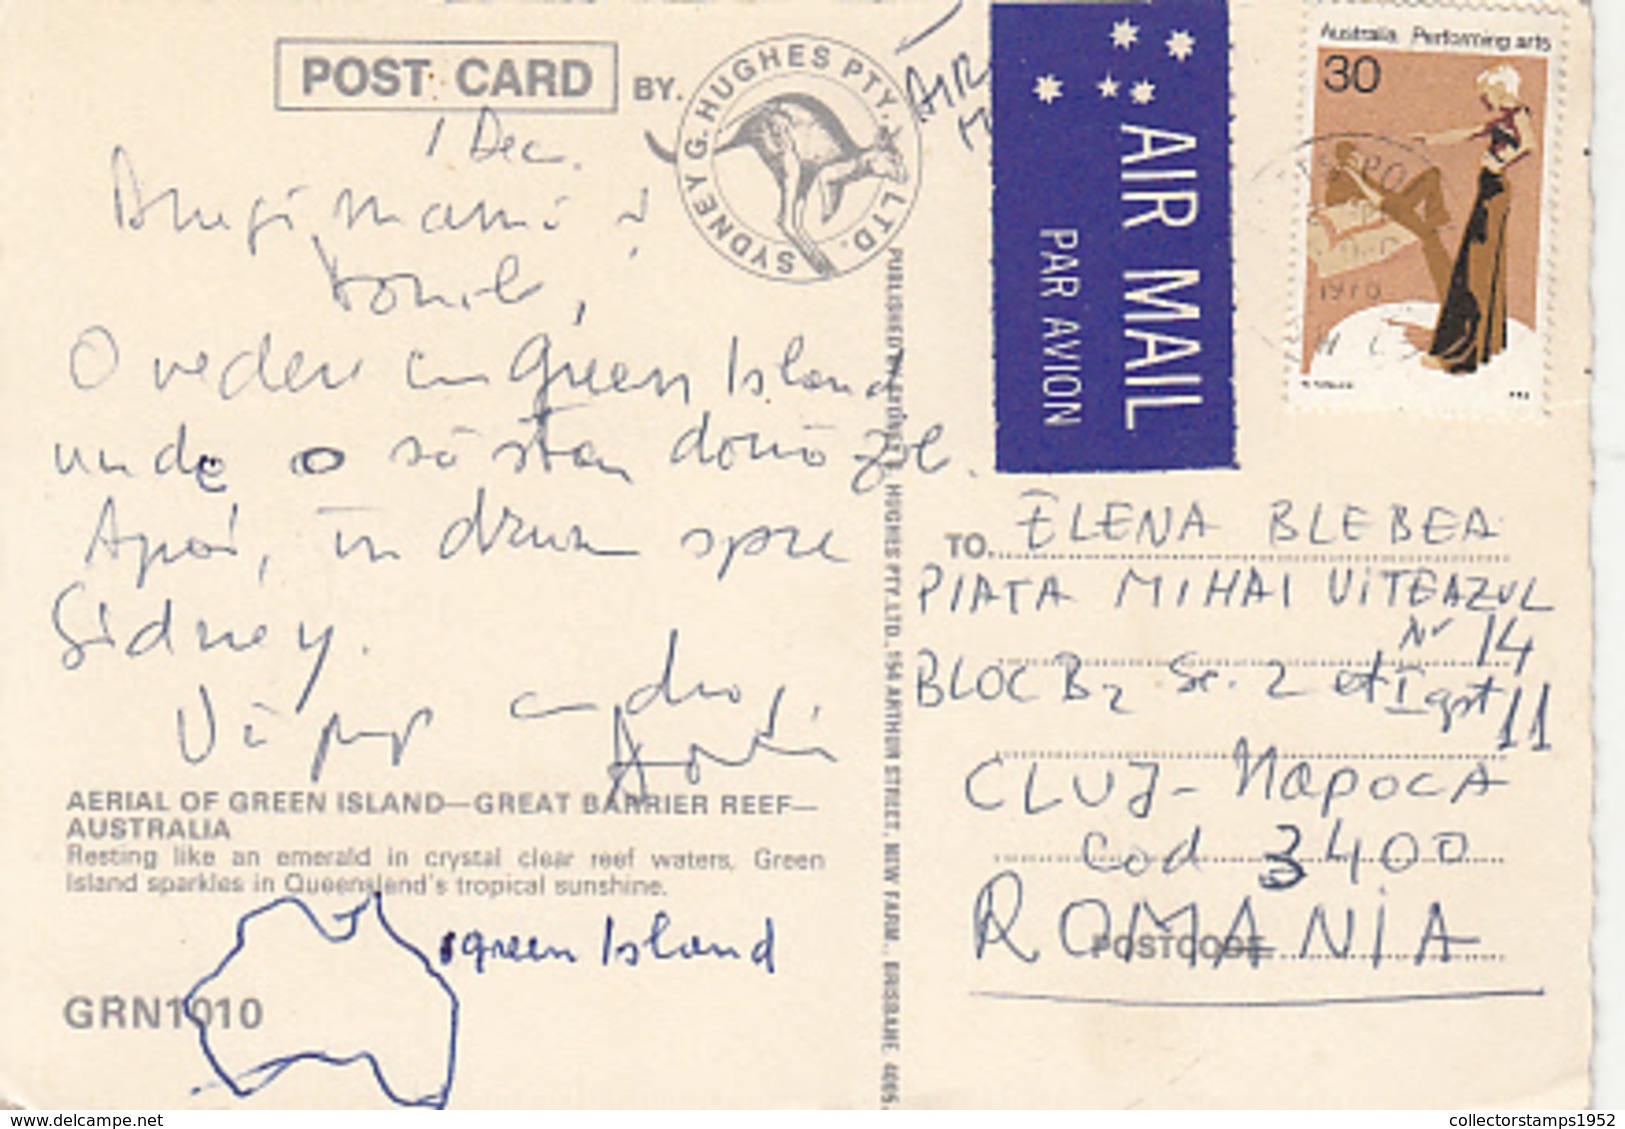 POST CARD BY.
SYDNEY G. HUGHES PTY. LTD.
AIR
AIR MAIL
PAR AVION
Australia Performing arts
30
1 Dec.
Dragi mamă și
O vedere cu Green Island
unde o să stau două zile.
Apoi, în drum spre
Sidney.
Vă pup cu drag,
AERIAL OF GREEN ISLAND—GREAT BARRIER REEF—
AUSTRALIA
Resting like an emerald in crystal clear reef waters, Green
Island sparkles in Queensland's tropical sunshine.
green Island
GRN1010
PUBLISHED BY SYDNEY G. HUGHES PTY. LTD., 154 ARTHUR STREET, NEW FARM., BRISBANE 4005.
TO. ELENA BLEBEA
PIATA MIHAI VITEAZUL
Nr 14
BLOC B2 Sc. 2 et I apt 11
CLUJ-NAPOCA
Cod 3400
ROMANIA
POSTCODE
collectorstamps1952